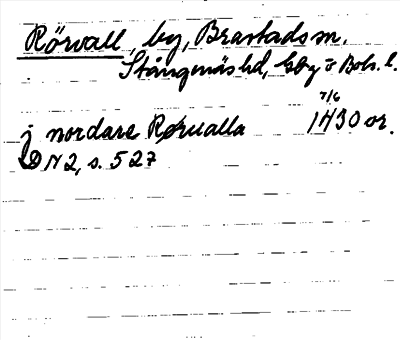 Rörvall, by, Brastads sn.
Stångenäs hd, Gbg o Boh. l.
7/6
j nordare Rørualla 1430 or.
DN 2, s. 527